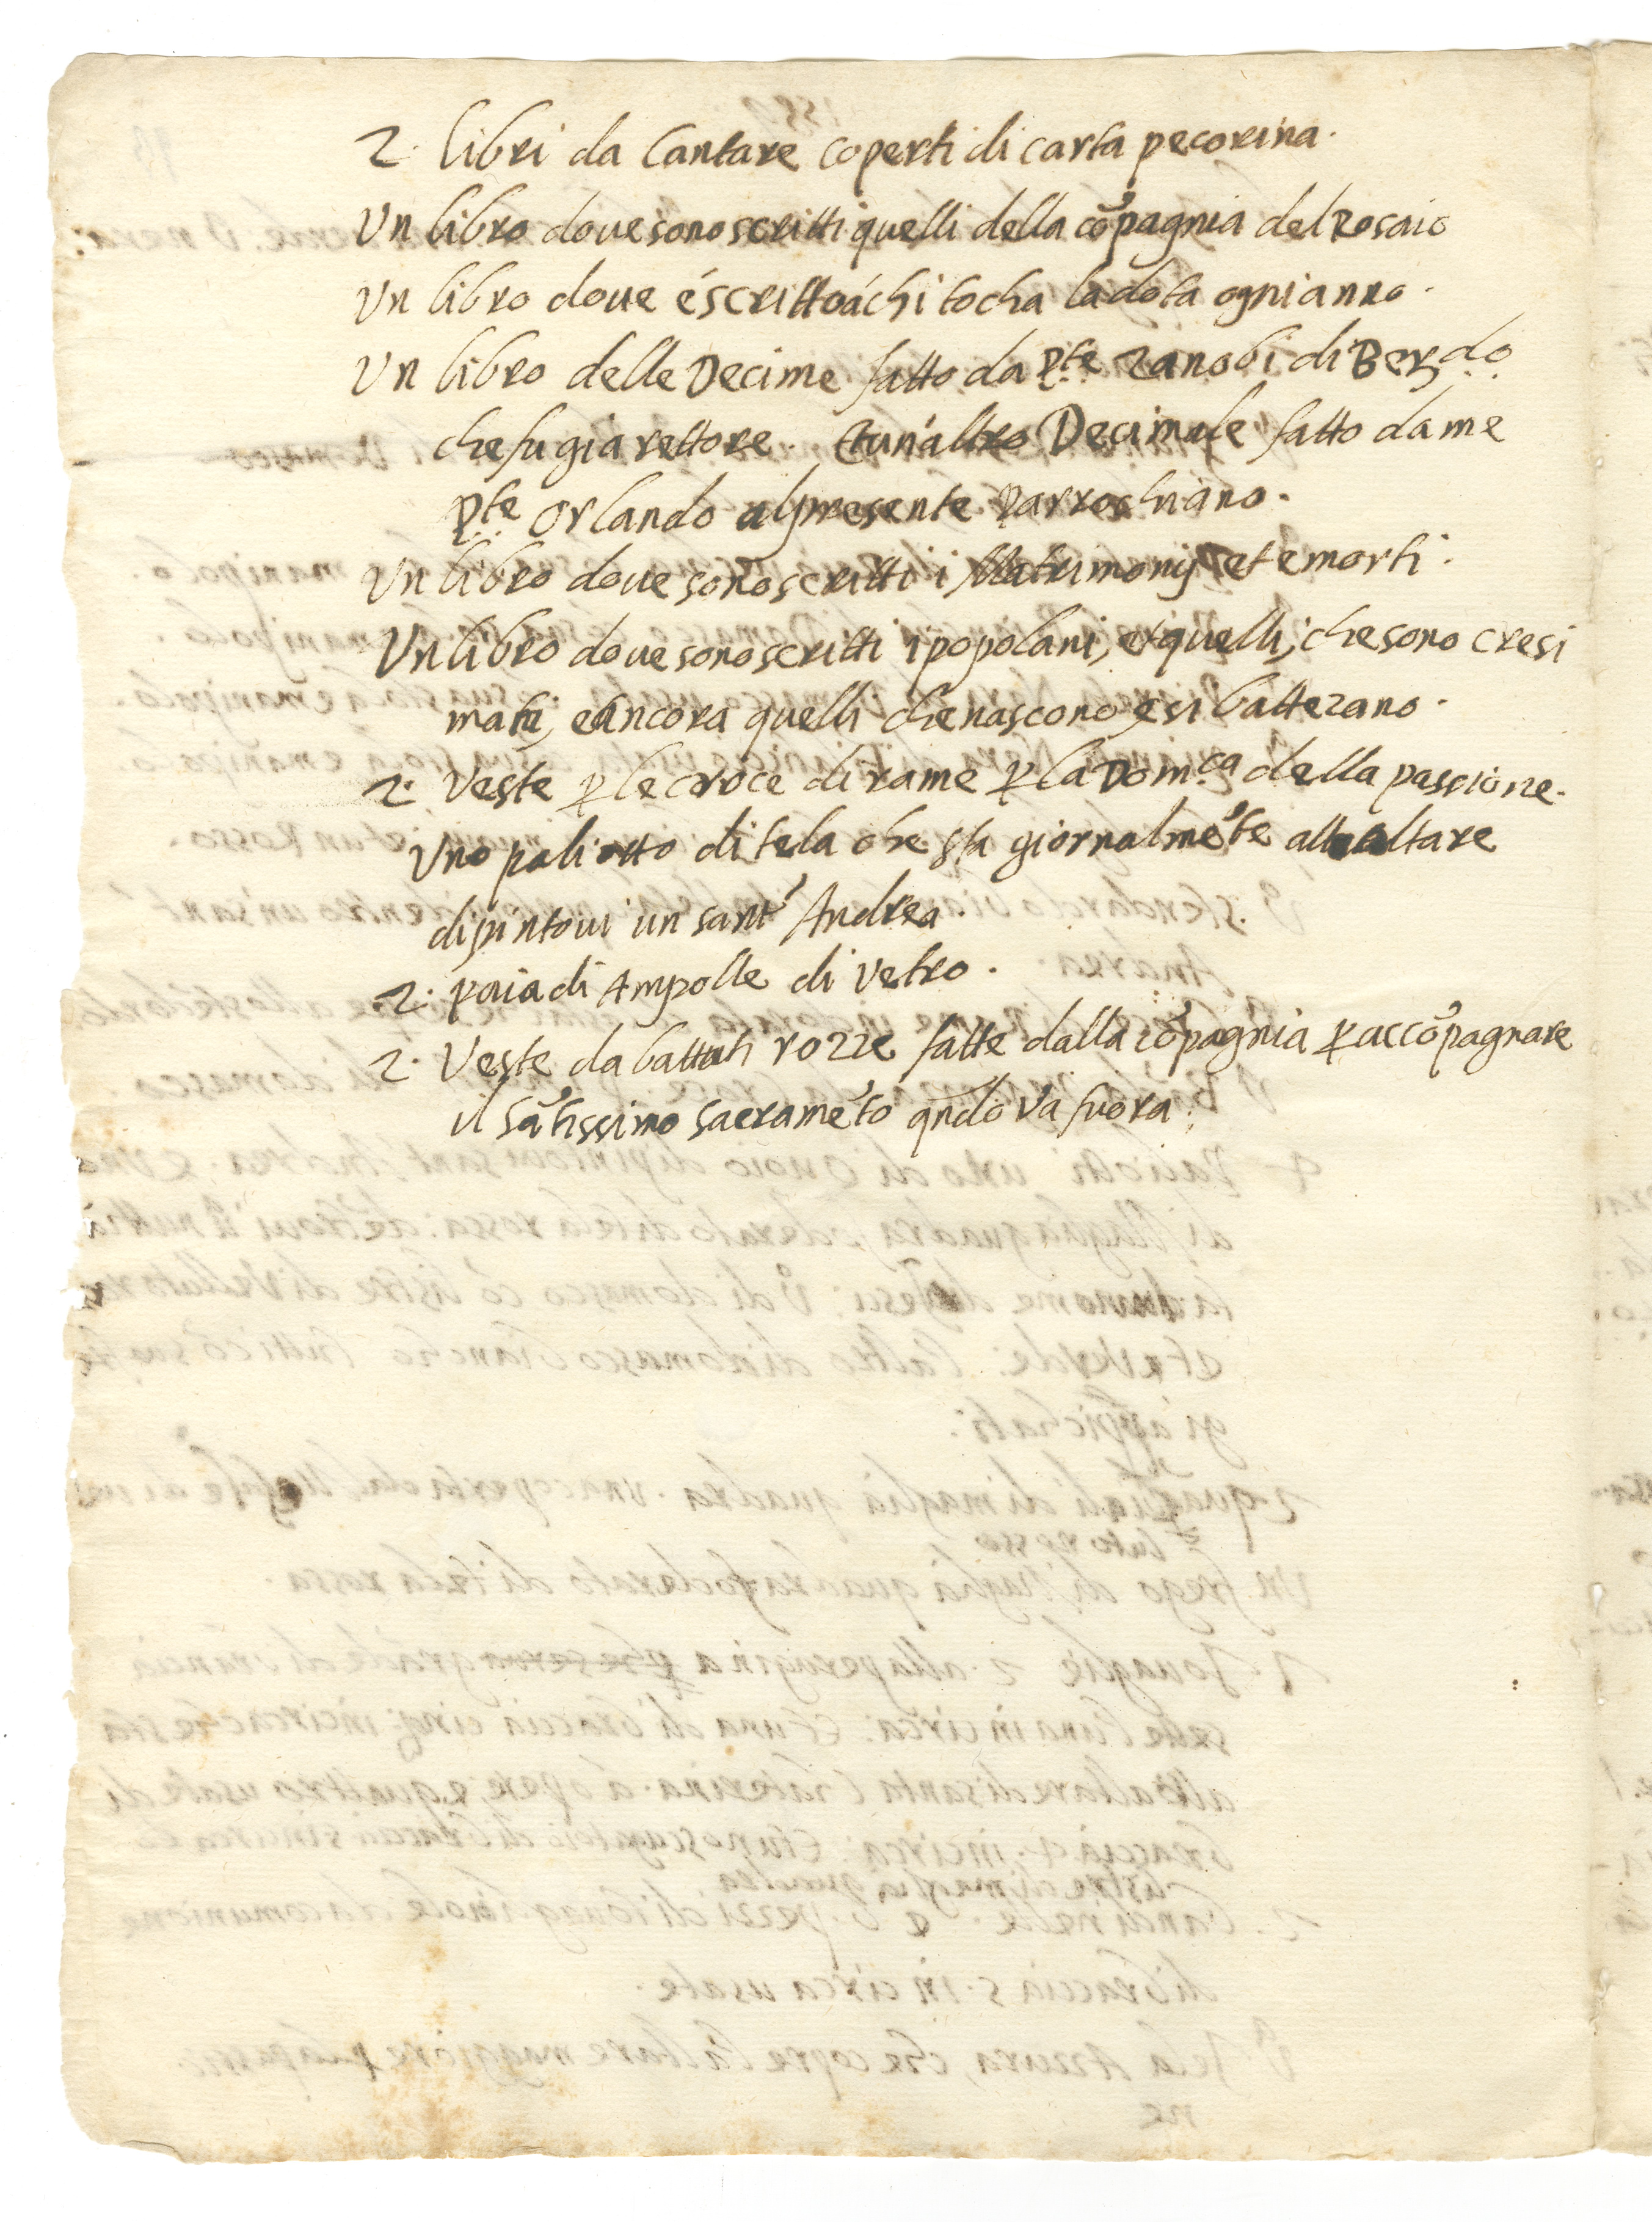 2. libri da Cantare coperti di carta pecorina.
Un libro doue sono scritti quelli della cõpagnia del Rosaio
Un libro doue é scritto á chi tocha la dota ogni anno.
Un libro delle Decime fatto da P.te Zanobi di Ber.do
che fu gia rettore. Et un'altro Decimale fatto da me
P.te Orlando al presente Parrochiano.
Un libro doue sono scritti i Matrimonij et e morti.
Un libro doue sono scritti i popolani, et quelli, che sono cresi
mati, e ancora quelli che nascono e si battezano.
2. Veste ꝑ le croce di rame ꝑ la Dom.ca della passione.
Uno paliotto di tela che sta giornalmẽte all altare
dipintoui un sant' Andrea.
2. paia di Ampolle di vetro.
2. Veste da battuti rozze fatte dalla cõpagnia ꝑ accõpagnare
il sãtissimo sacramẽto qñdo va fuora.